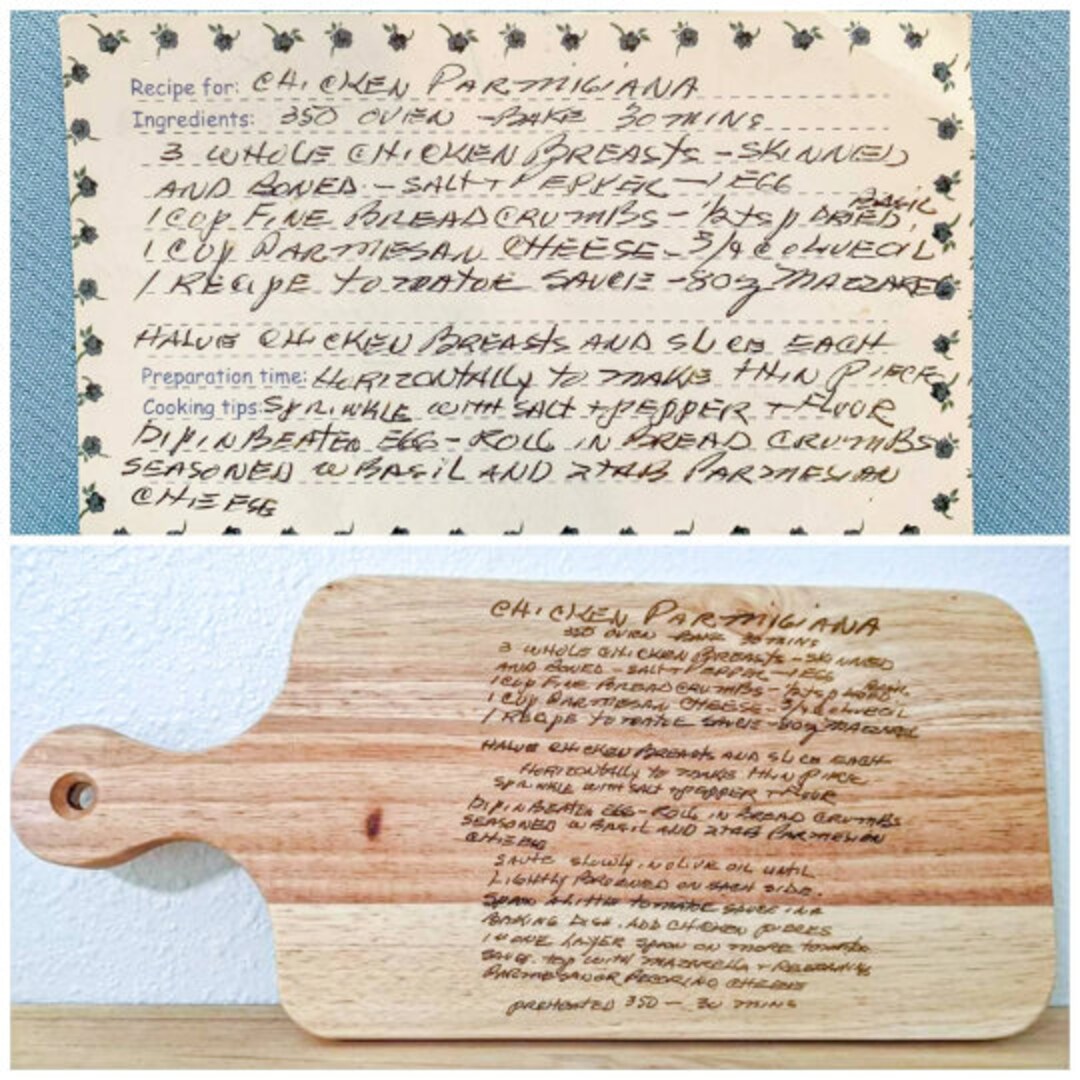 Recipe for: CHICKEN PARMIGIANA
Ingredients: 350 OVEN - BAKE 30 MINS
3 WHOLE CHICKEN BREASTS - SKINNED
AND BONED - SALT + PEPPER - 1 EGG
BASIL
1 CUP FINE BREADCRUMBS - 1/2 tsp DRIED,
1 CUP PARMESAN CHEESE - 3/4 C OLIVE OIL
1 RECIPE TOMATOE SAUCE - 8 OZ MAZZAREL
HALVE CHICKEN BREASTS AND SLICE EACH
Preparation time: HORIZONTALLY TO MAKE THIN PIECE
Cooking tips: SPRINKLE WITH SALT + PEPPER + FLOUR
DIP IN BEATEN EGG - ROLL IN BREAD CRUMBS
SEASONED W BASIL AND 2 TAB PARMESAN
CHEESE
CHICKEN PARMIGIANA
350 OVEN - BAKE 30 MINS
3 WHOLE CHICKEN BREASTS - SKINNED
AND BONED - SALT + PEPPER - 1 EGG
BASIL
1 CUP FINE BREADCRUMBS - 1/2 tsp DRIED
1 CUP PARMESAN CHEESE - 3/4 C OLIVE OIL
1 RECIPE TOMATOE SAUCE - 8 OZ MAZZAREL
HALVE CHICKEN BREASTS AND SLICE EACH
HORIZONTALLY TO MAKE THIN PIECE
SPRINKLE WITH SALT + PEPPER + FLOUR
DIP IN BEATEN EGG - ROLL IN BREAD CRUMBS
SEASONED W BASIL AND 2 TAB PARMESAN
CHEESE
SAUTE SLOWLY IN OLIVE OIL UNTIL
LIGHTLY BROWNED ON EACH SIDE.
SPOON A LITTLE TOMATOE SAUCE IN A
BAKING DISH. ADD CHICKEN PIECES
IN ONE LAYER SPOON ON MORE TOMATOE
SAUCE. TOP WITH MAZARELLA + REMAINING
PARMESAN OR PECORINO CHEESE
PREHEATED 350 - 30 MINS